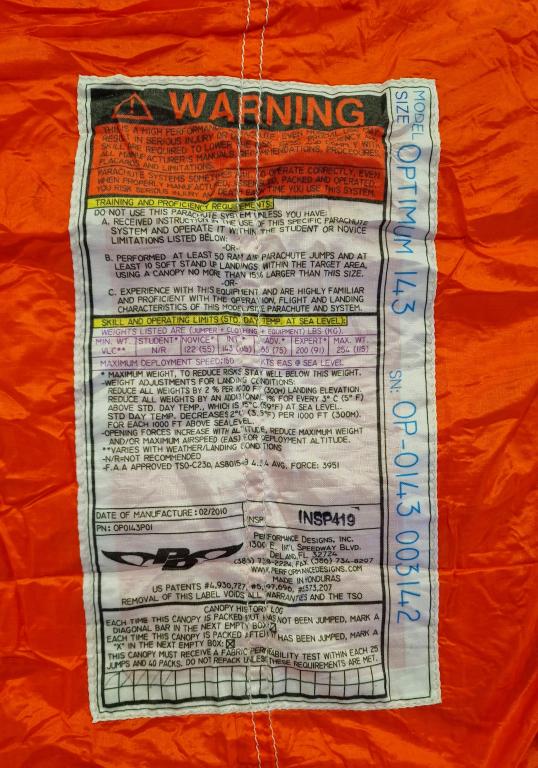 WARNING
THIS IS A HIGH PERFORMANCE
RESULT IN SERIOUS INJURY OR
SKILL ARE REQUIRED TO LOWER THE
ALL MANUFACTURER'S MANUALS, RECOMMENDATIONS, PROCEDURES,
PLACARDS AND LIMITATIONS.
PARACHUTE SYSTEMS SOMETIMES OPERATE CORRECTLY, EVEN
WHEN PROPERLY MANUFACTURED, PACKED AND OPERATED.
YOU RISK SERIOUS INJURY TIME YOU USE THIS SYSTEM.
TRAINING AND PROFICIENCY REQUIREMENTS:
DO NOT USE THIS PARACHUTE SYSTEM UNLESS YOU HAVE:
A. RECEIVED INSTRUCTION IN THE USE OF THIS SPECIFIC PARACHUTE
SYSTEM AND OPERATE IT WITHIN THE STUDENT OR NOVICE
LIMITATIONS LISTED BELOW.
-OR-
B. PERFORMED AT LEAST 50 RAM AIR PARACHUTE JUMPS AND AT
LEAST 10 SOFT STAND UP LANDINGS WITHIN THE TARGET AREA,
USING A CANOPY NO MORE THAN 15% LARGER THAN THIS SIZE.
-OR-
C. EXPERIENCE WITH THIS EQUIPMENT AND ARE HIGHLY FAMILIAR
AND PROFICIENT WITH THE OPERATION, FLIGHT AND LANDING
CHARACTERISTICS OF THIS MODEL/SIZE PARACHUTE AND SYSTEM.
SKILL AND OPERATING LIMITS (STD. DAY TEMP. AT SEA LEVEL):
WEIGHTS LISTED ARE (JUMPER + CLOTHING + EQUIPMENT) LBS (KG).
MIN. WT. STUDENT* NOVICE* INT.* ADV.* EXPERT* MAX. WT.
VLC** N/R 122 (55) 143 (75) 200 (91) 254 (115)
MAXIMUM DEPLOYMENT SPEED:150 KTS EAS @ SEA LEVEL
* MAXIMUM WEIGHT, TO REDUCE RISKS STAY WELL BELOW THIS WEIGHT.
-WEIGHT ADJUSTMENTS FOR LANDING CONDITIONS:
REDUCE ALL WEIGHTS BY 2 % PER 1000 FT (300M) LANDING ELEVATION.
REDUCE ALL WEIGHTS BY AN ADDITIONAL 1% FOR EVERY 3° C (5° F)
ABOVE STD. DAY TEMP., WHICH IS 15°C (59°F) AT SEA LEVEL.
STD DAY TEMP. DECREASES 2°C (3.5°F) PER 1000 FT (300M).
FOR EACH 1000 FT ABOVE SEA LEVEL.
-OPENING FORCES INCREASE WITH ALTITUDE, REDUCE MAXIMUM WEIGHT
AND/OR MAXIMUM AIRSPEED (EAS) FOR DEPLOYMENT ALTITUDE.
**VARIES WITH WEATHER/LANDING CONDITIONS
-N/R=NOT RECOMMENDED
-F.A.A APPROVED TSO-C23D, AS8015-B AVG. FORCE: 3951
DATE OF MANUFACTURE: 02/2010 INSP INSP419
PN: OP0143P01
PERFORMANCE DESIGNS, INC.
1300 E. INT'L SPEEDWAY BLVD.
DELAND, FL 32724
(386) 738-2224, FAX (386) 734-8297
WWW.PERFORMANCEDESIGNS.COM
MADE IN HONDURAS
PD
US PATENTS #4,930,727, #5,197,696,
REMOVAL OF THIS LABEL VOIDS ALL WARRANTIES AND THE TSO
CANOPY HISTORY LOG
EACH TIME THIS CANOPY IS PACKED BUT HAS NOT BEEN JUMPED, MARK A
DIAGONAL BAR IN THE NEXT EMPTY BOX:
EACH TIME THIS CANOPY IS PACKED AFTER IT HAS BEEN JUMPED, MARK A
"X" IN THE NEXT EMPTY BOX:
THIS CANOPY MUST RECEIVE A FABRIC PERMEABILITY TEST WITHIN EACH 25
JUMPS AND 40 PACKS. DO NOT REPACK UNLESS THESE REQUIREMENTS ARE MET.
MODEL
SIZE OPTIMUM 143
SN: OP-0143 003142